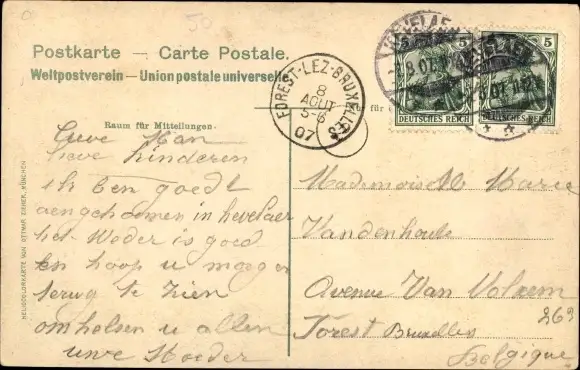 50
Postkarte — Carte Postale.
Weltpostverein – Union postale universelle
FOREST-LEZ-BRUXELLES
8
AOUT
5-6
07
5 5
DEUTSCHES REICH
5 5
DEUTSCHES REICH
Raum für Mitteilungen.
für
Lieve Man
lieve kinderen
ik ben goedt
aengekomen in kevelaer
het Weder is goed
en hoop u moegen
terug te zien
omhelsen u allen
uwe Moeder
Mademoiselle Marie
Vandenhoute
Avenue Van Volxem
269
Forest Bruxelles
Belgique
HELIOCOLORKARTE VON OTTMAR ZIEHER, MÜNCHEN